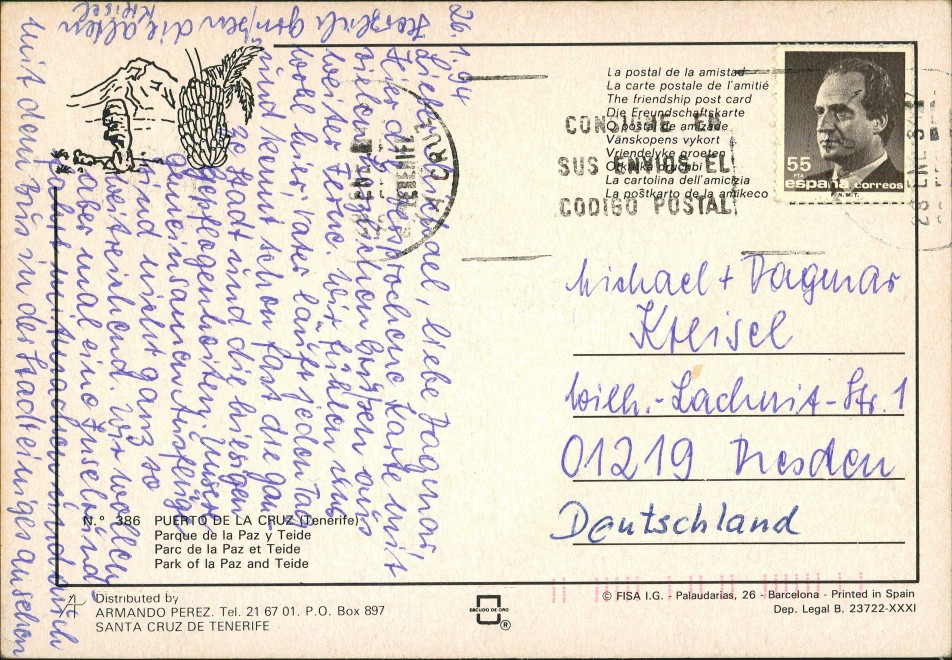 26.1.94
Lieber Michael, liebe Dagmar,
Hier die versprochene Karte mit
vielen herzlichen Grüßen aus
weiter Ferne. Wir fühlen uns
wohl hier, Vater läuft jeden Tag
und kennt schon fast die gan-
ze Stadt und die hiesigen
Gelegenheiten. Unsere
gemeinsamen Ausflüge
sind nicht ganz so
weitreichend. Wir wollen
aber mal eine Inselrund-
fahrt mitmachen und auch
mit dem Bus in der Stadt einiges ansehen
Herzlich grüßen die alten
Kreisel
La postal de la amistad
La carte postale de l'amitié
The friendship post card
Die Freundschaftskarte
O postal de amizade
Vänskopens vykort
Vriendelyke groeten
La cartolina dell'amicizia
La poŝtkarto de la amikeco
CONSIGNE EN
SUS ENVIOS EL
CODIGO POSTAL
CRUZ
TENERIFE
55
PTA
españa correos
F.N.M.T.
Michael + Dagmar
Kreisel
Wilh.-Lachnit-Str. 1
01219 Dresden
Deutschland
N.º 386 PUERTO DE LA CRUZ (Tenerife)
Parque de la Paz y Teide
Parc de la Paz et Teide
Park of la Paz and Teide
Distributed by
ARMANDO PEREZ. Tel. 21 67 01. P.O. Box 897
SANTA CRUZ DE TENERIFE
ESCUDO DE ORO
®
© FISA I.G. - Palaudarias, 26 - Barcelona - Printed in Spain
Dep. Legal B. 23722-XXXI